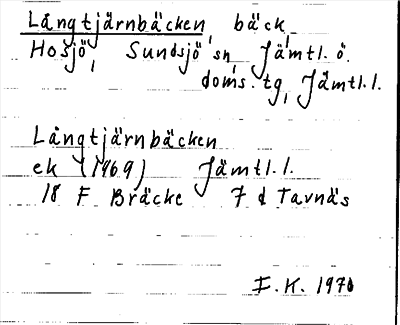 Långtjärnbäcken, bäck
Hosjö, Sundsjö sn, Jämtl. ö.
doms. tg, Jämtl. l.
Långtjärnbäcken
ek (1969) Jämtl. l.
18 F Bräcke 7 d Tavnäs
I. K. 1970